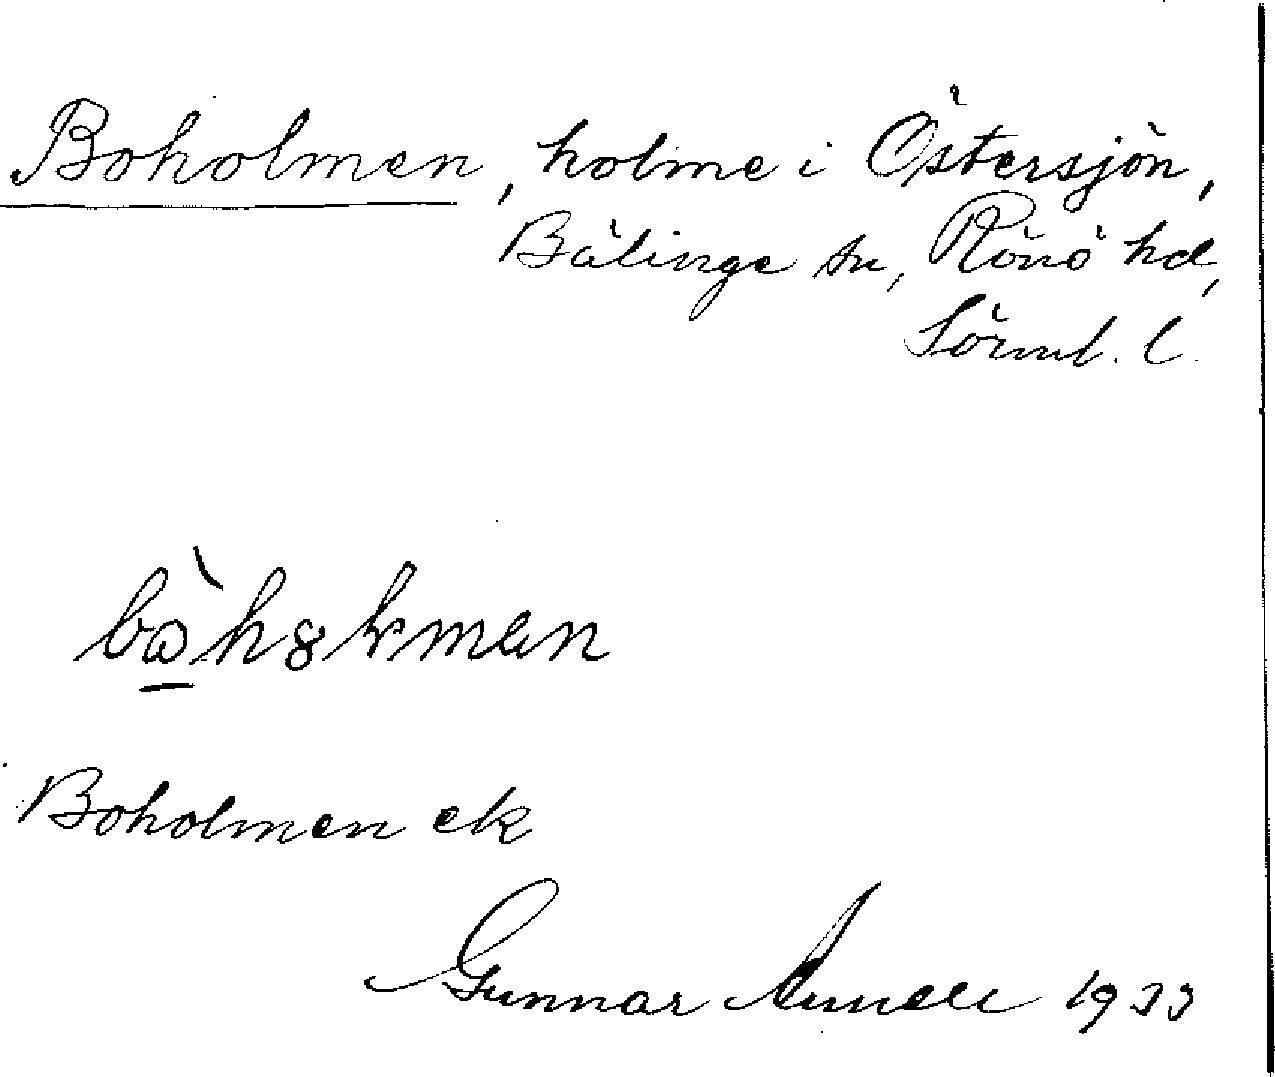 Boholmen, holme i Östersjön,
Bälinge sn, Rönö hd,
Sörml. l.
Boholmen ek
Gunnar Annell 1933